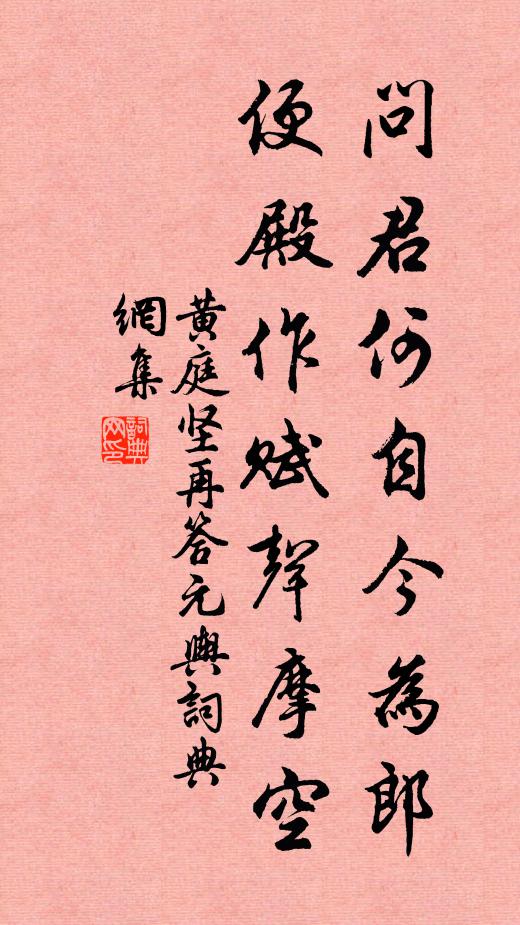 問君何自今為郎
便殿作賦聲摩空
黄庭坚再答元輿詞典
網集
詞典網印